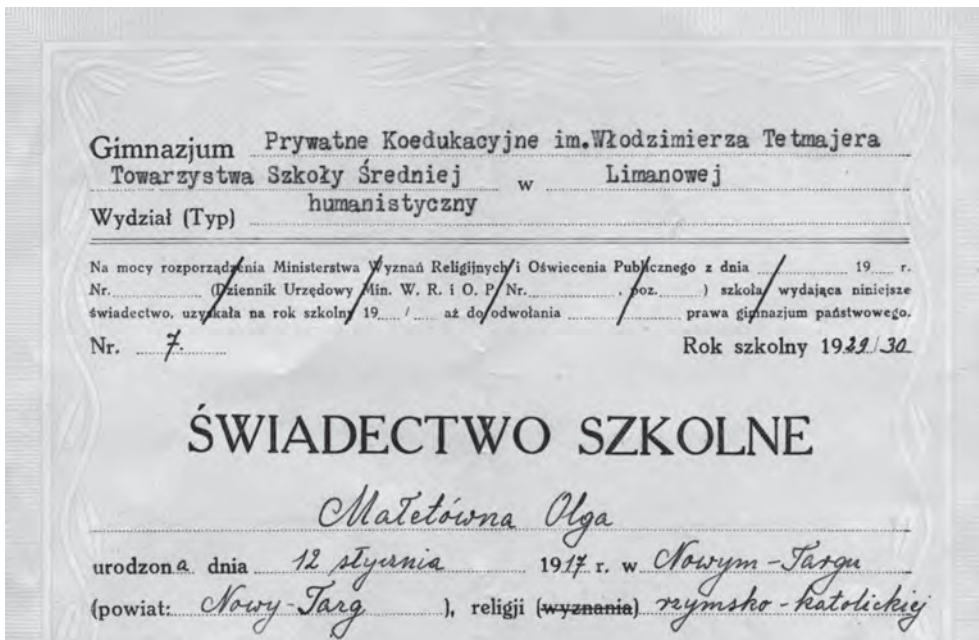 Gimnazjum Prywatne Koedukacyjne im.Włodzimierza Tetmajera
Towarzystwa Szkoły Średniej w Limanowej
Wydział (Typ) humanistyczny
Na mocy rozporządzenia Ministerstwa Wyznań Religijnych i Oświecenia Publicznego z dnia 19 r.
Nr. (Dziennik Urzędowy Min. W. R. i O. P. Nr. , poz. ) szkoła wydająca niniejsze
świadectwo, uzyskała na rok szkolny 19 / aż do odwołania prawa gimnazjum państwowego.
Nr. 7. Rok szkolny 1929/30
ŚWIADECTWO SZKOLNE
Małetówna Olga
urodzona dnia 12 stycznia 1917 r. w Nowym-Targu
(powiat: Nowy-Targ ), religji (wyznania) rzymsko-katolickiej